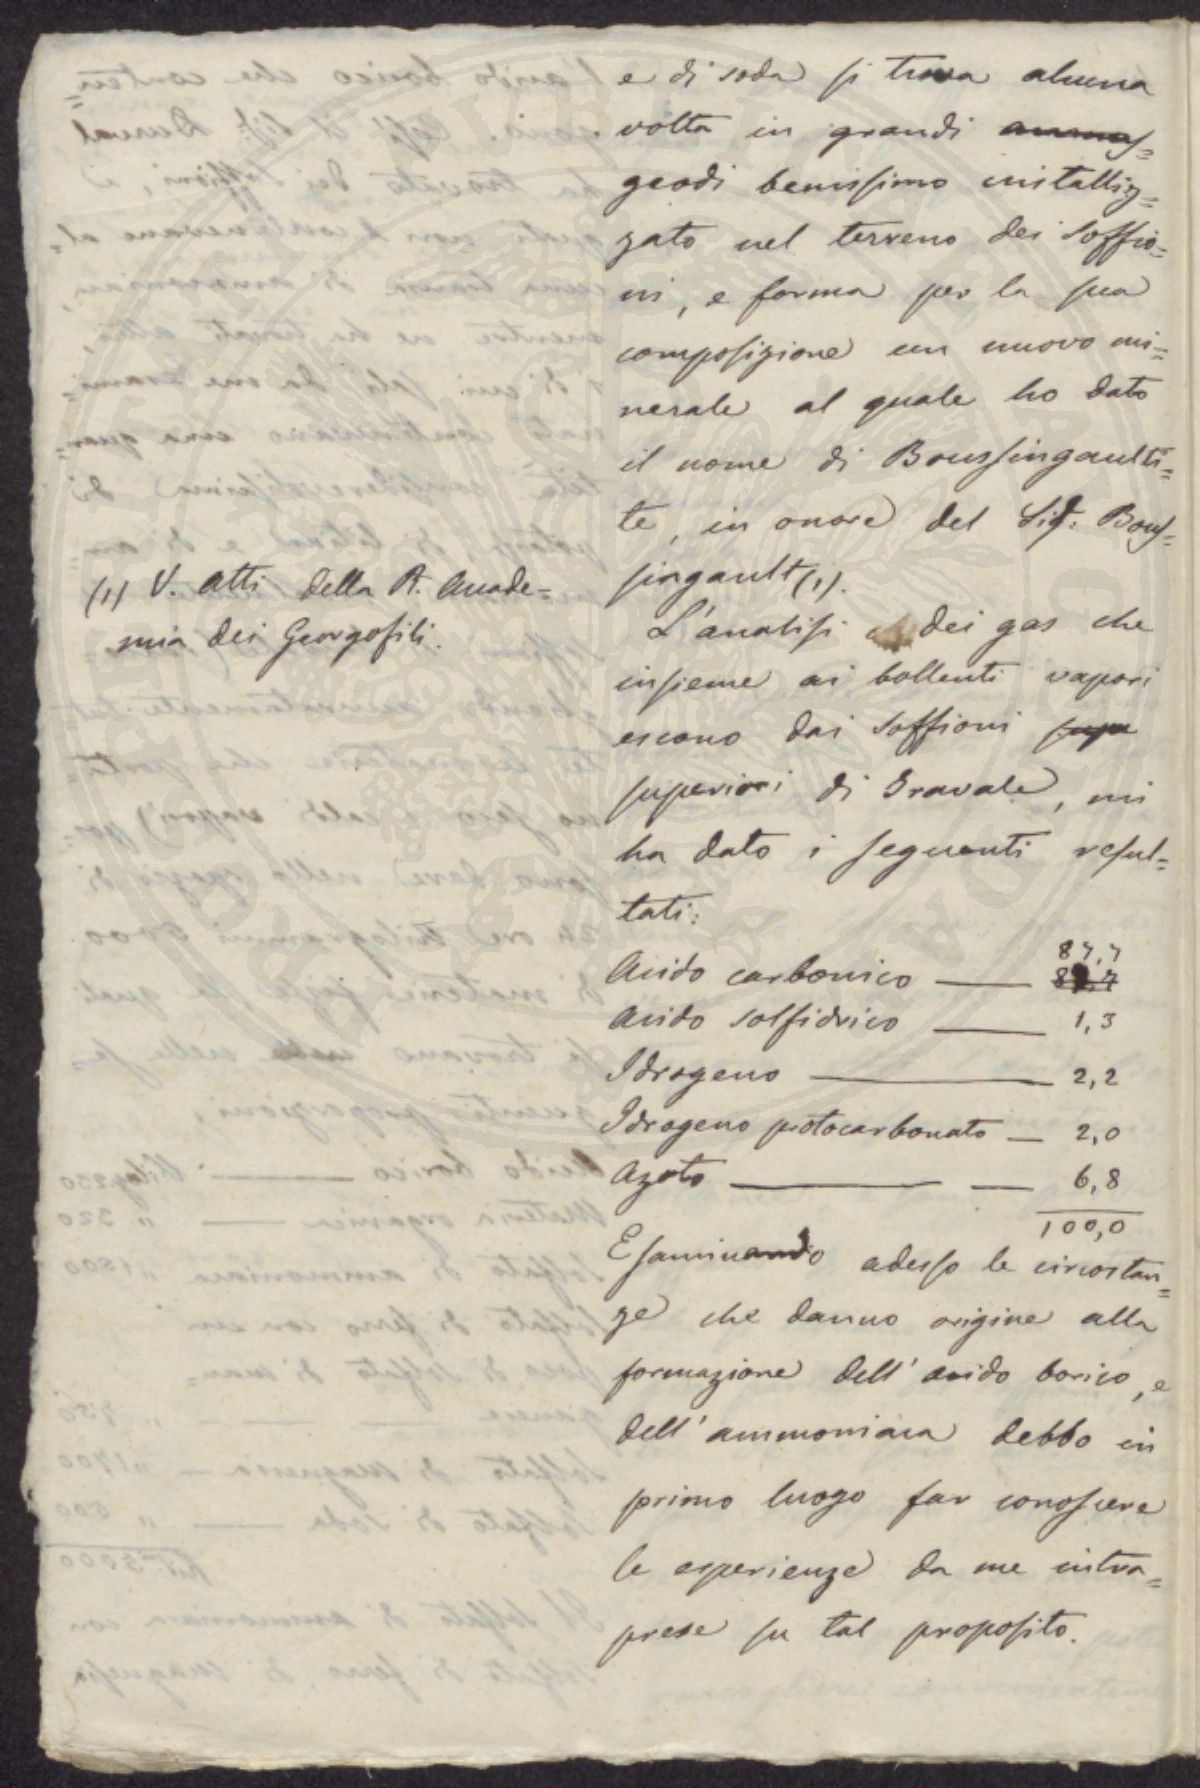 e di soda si trova alcuna
volta in grandi ammas=
geodi benissimo cristalliz=
zato nel terreno dei Soffio=
ni, e forma per la sua
composizione un nuovo mi=
nerale al quale ho dato
il nome di Boussingaulti=
te, in onore del Sig. Bous=
singault (1).
(1) V. Atti della R. Accade=
mia dei Georgofili.
L'analisi dei gas che
insieme ai bollenti vapori
escono dai Soffioni supe
superiori di Travale, mi
ha dato i seguenti resul=
tati:
Acido carbonico —— 87,7
Acido solfidrico —— 1,3
Idrogeno —— 2,2
Idrogeno protocarbonato — 2,0
Azoto —— — 6,8
100,0
Esaminando adesso le circostan=
ze che danno origine alla
formazione dell'acido borico, e
dell'ammoniaca debbo in
primo luogo far conoscere
le esperienze da me intra=
prese su tal proposito.